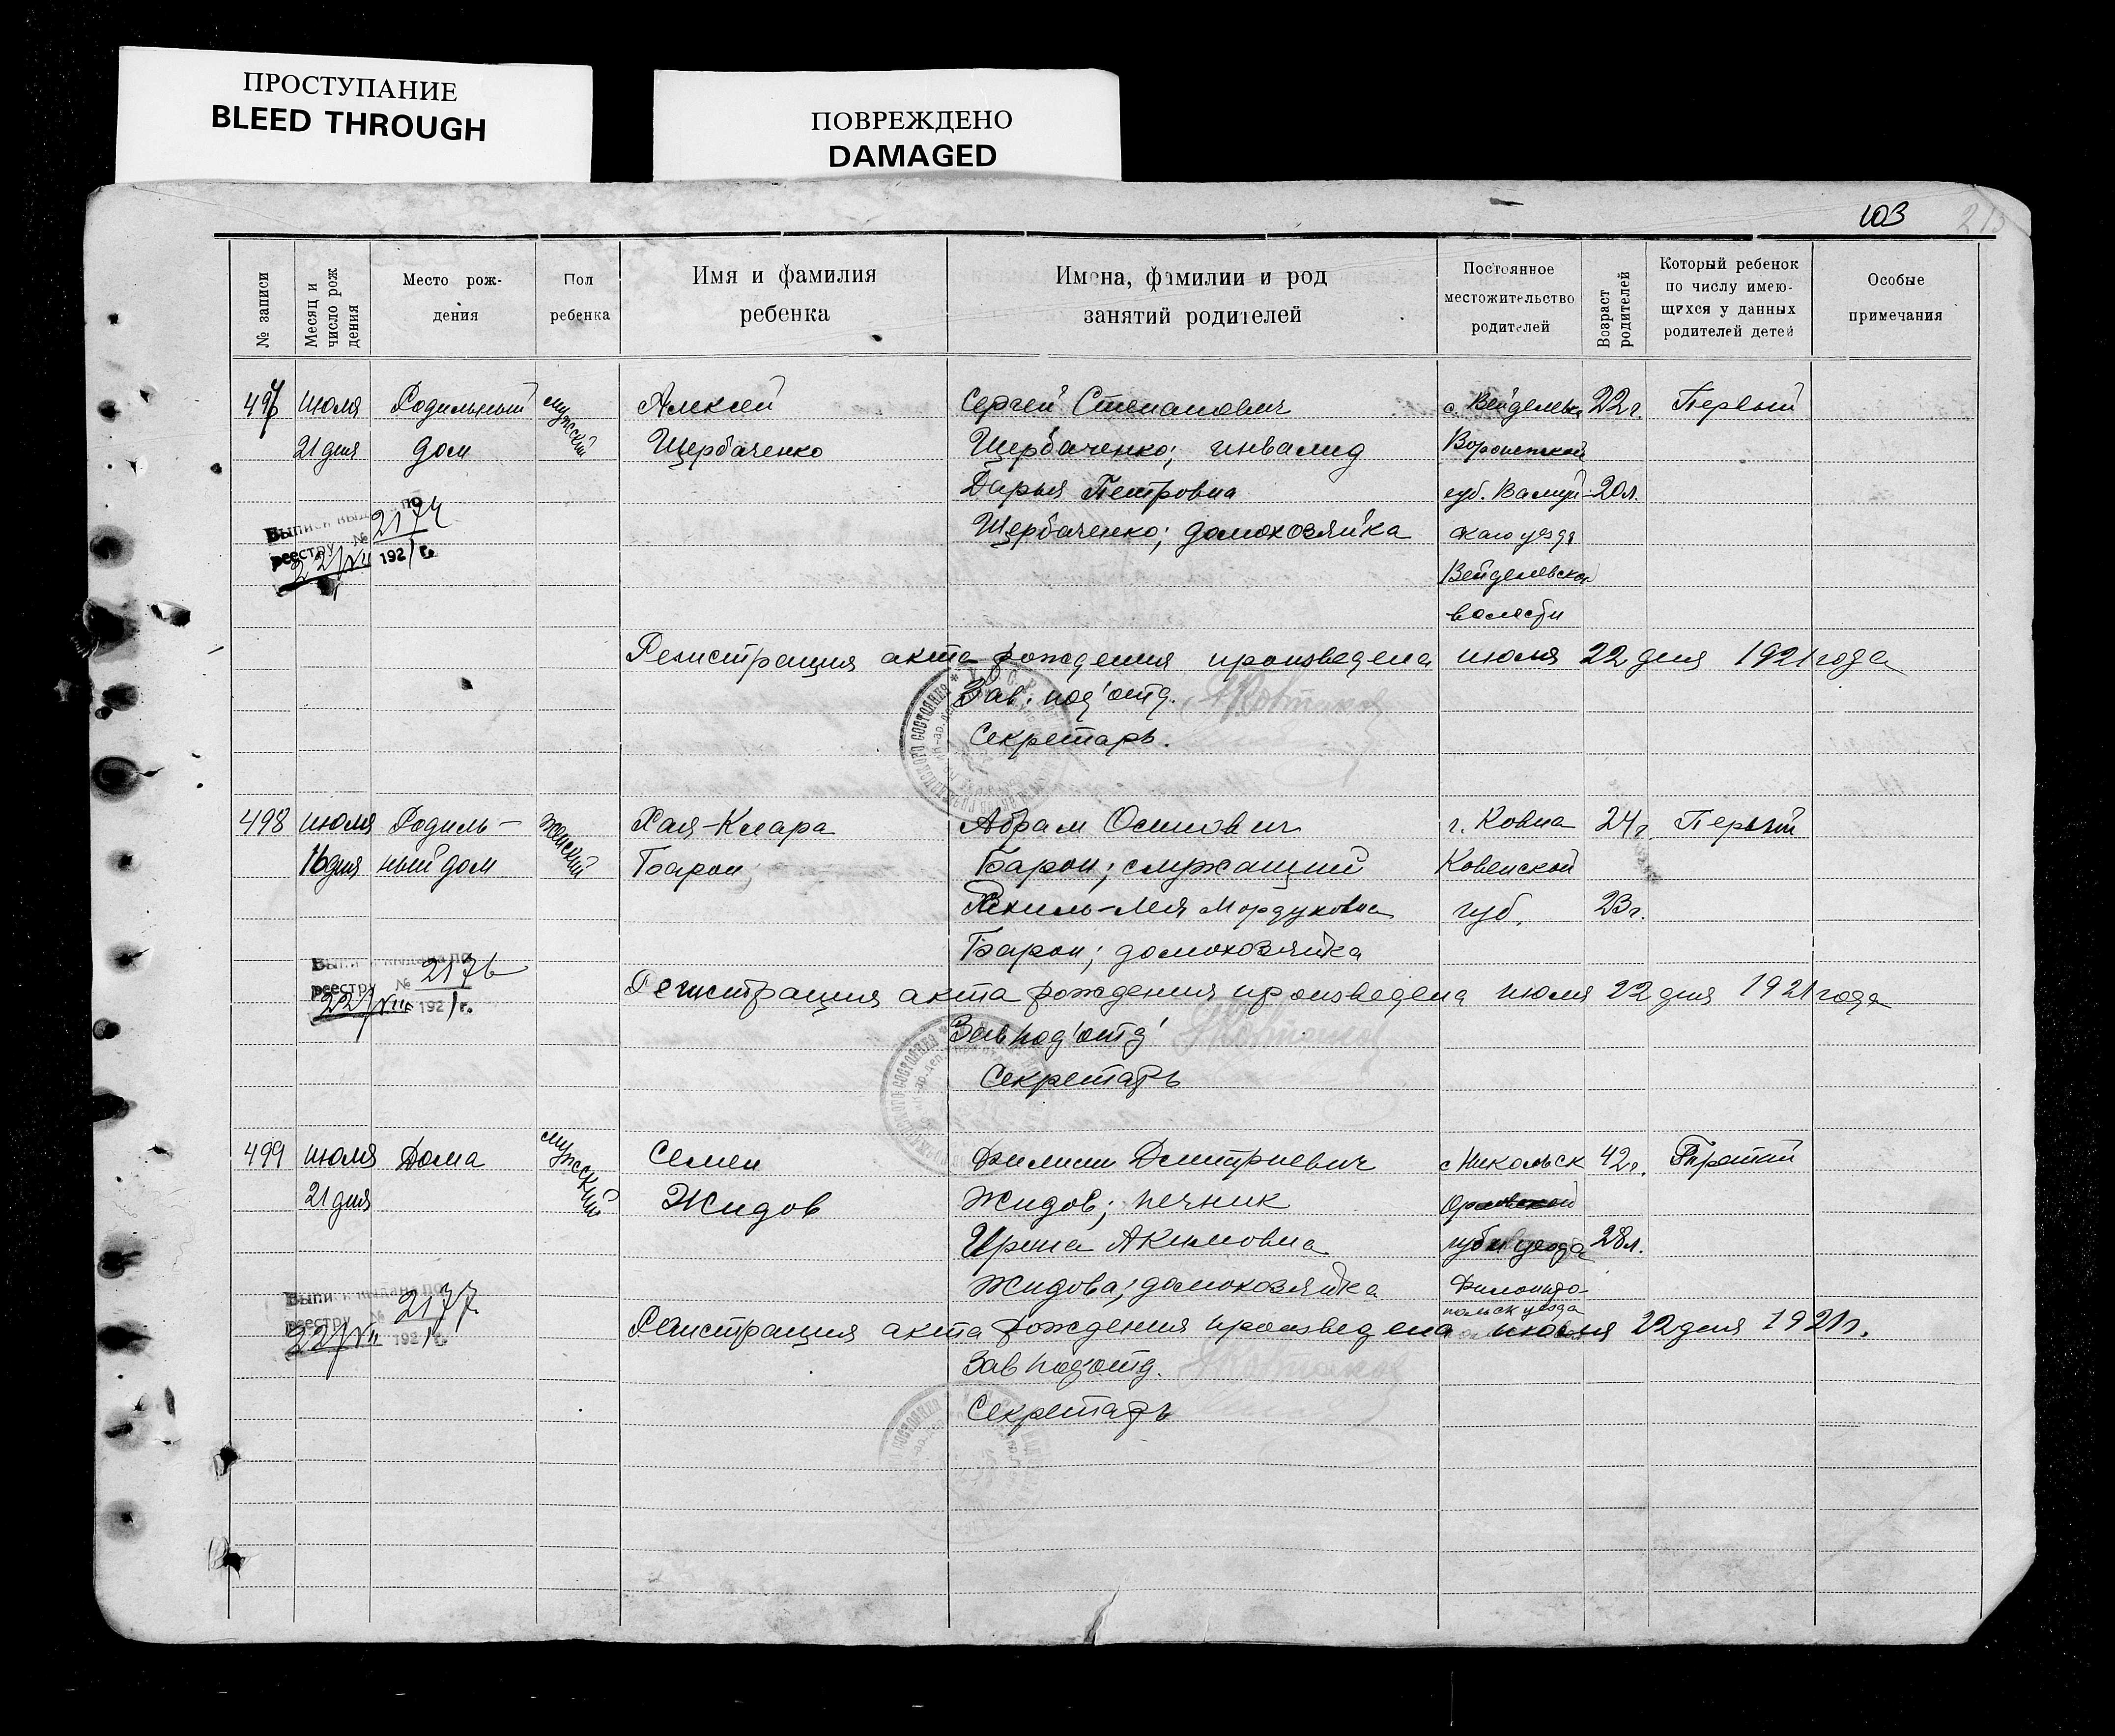 ПРОСТУПАНИЕ
BLEED THROUGH
ПОВРЕЖДЕНО
DAMAGED
103
213
№ записи
Месяц и число рож дения
Место рож-
дения
Пол
ребенка
Имя и фамилия
ребенка
Имена, фамилии и род
занятий родителей
Постоянное
местожительство
родителей
Возраст родителей
Который ребенок
по числу имею-
щихся у данных
родителей детей
Особые
примечания
497 июля Родильный мужской Алексей Сергей Степанович с. Вейделевка 22 г. Первый
21 дня дом Щербаченко Щербаченко; инвалид Воронежской
Дарья Петровна губ. Валуй- 20 л.
Щербаченко; домохозяйка скаго уезда
Вейделевской
волости
Выписи выдана по
реестру № 2174
22/VII 1921 г.
Регистрация акта рождения произведена июля 22 дня 1921 года
Зав. под'отд.
Секретарь.
498 июля Родиль- женский Хая-Клара Абрам Осипович г. Ковна 24 г. Первый
16 дня ный дом Барон Барон; служащий Ковенской
Рахиль-Лея Мордуховна губ. 23 г.
Барон; домохозяйка
Выписи выдана по
реестру № 2176
22/VII 1921 г.
Регистрация акта рождения произведена июля 22 дня 1921 года
Зав под'отд
Секретарь
499 июля Дома мужской Семен Филипп Дмитриевич с Никольск 42 г. Третий
21 дня Жидов Жидов; печник
Ирина Акимовна губ и уезда 28 л.
Жидова; домохозяйка
уезда
Выписи выдана по
реестру № 2177
22/VII 1921 г.
Регистрация акта рождения произведена июля 22 дня 1921 г.
Зав под'отд.
Секретарь